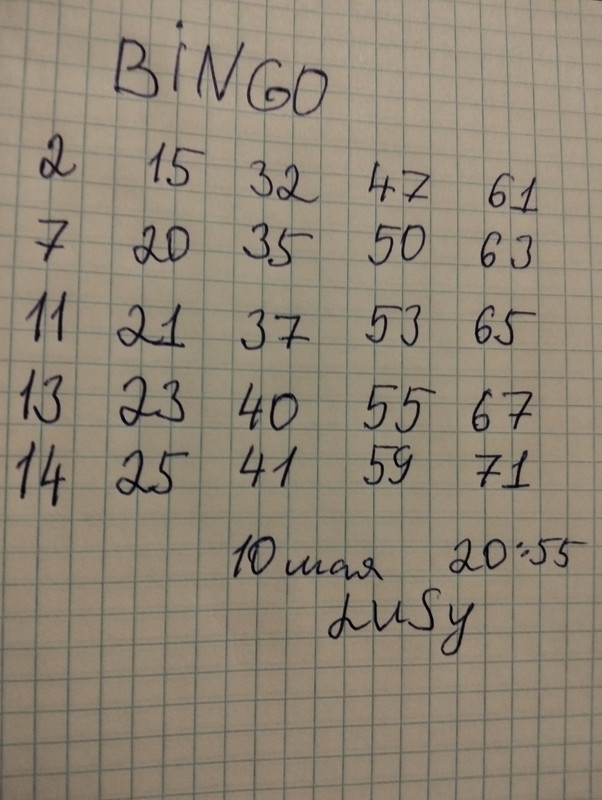 BiNGO
2 15 32 47 61
7 20 35 50 63
11 21 37 53 65
13 23 40 55 67
14 25 41 59 71
10 мая 20:55
LuSy